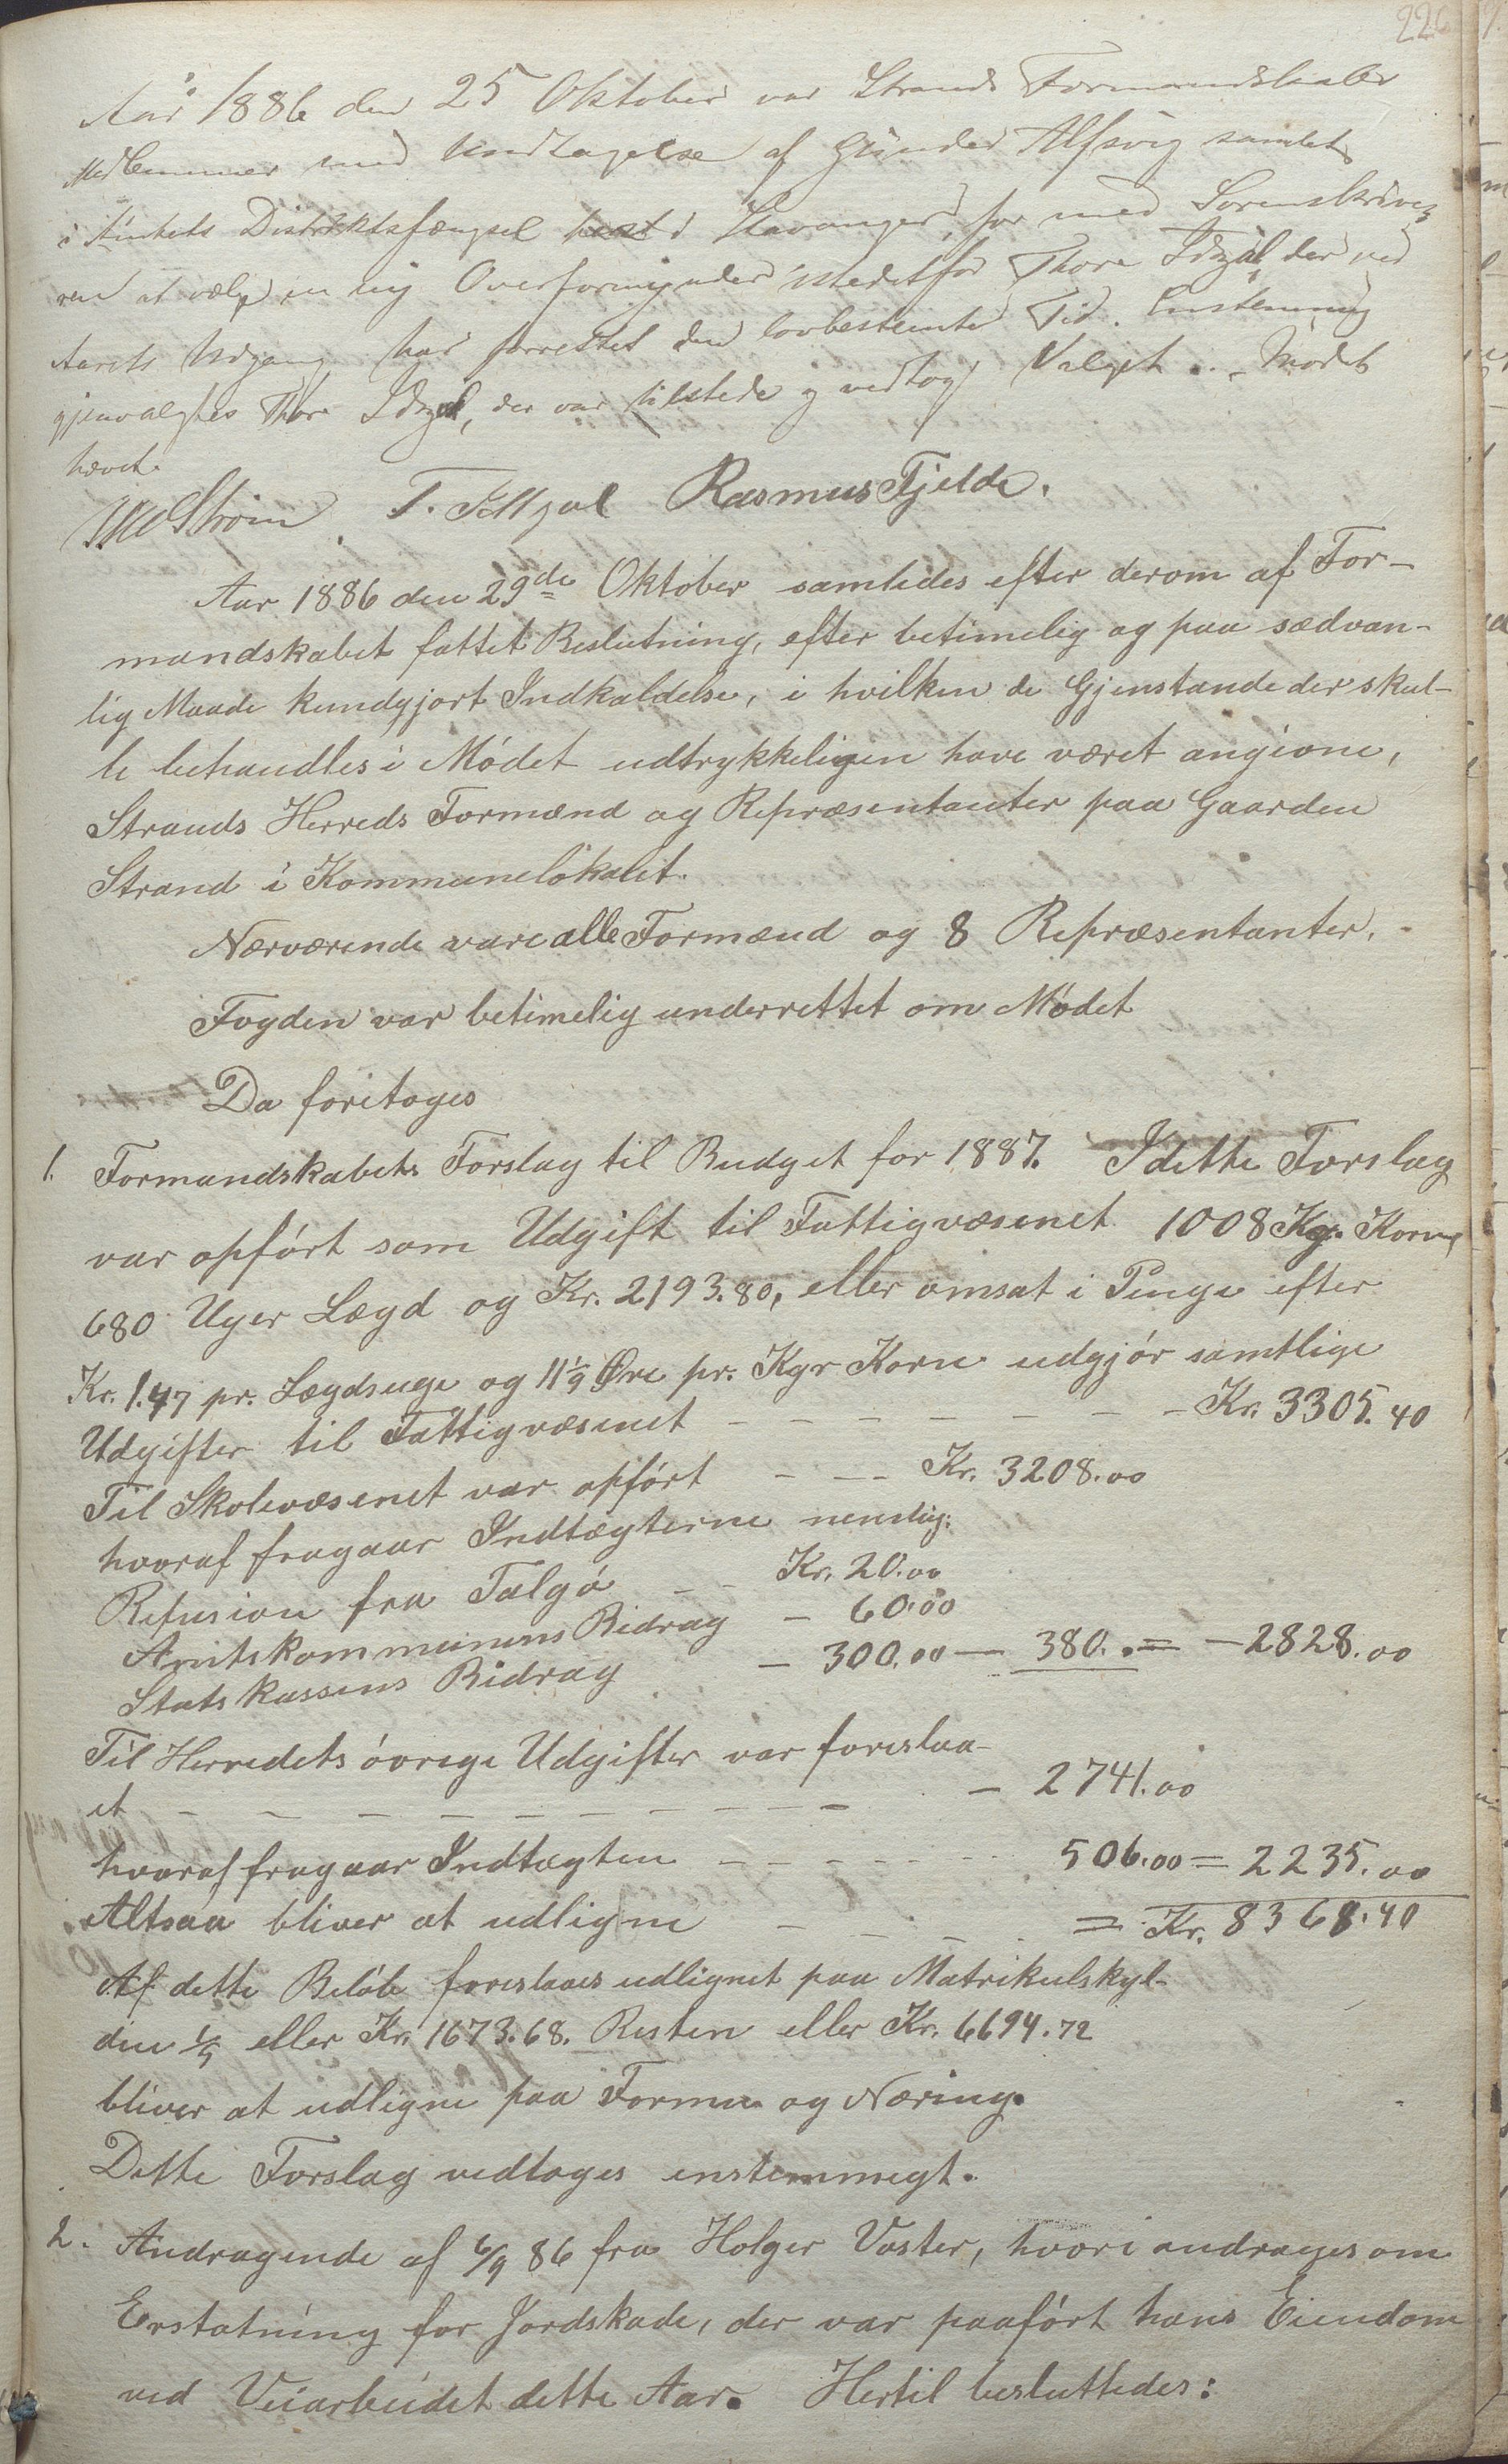 226
Aar 1886 den 25 Oktober var Strands Formandskabs
Medlemmer med Undtagelse af Gunder Alfsvig samlet
i Amtets Distriktsfængsel i Stavanger for med Sorenskrive
ren at vælge en ny Overformynder istedetfor Thore Idsøl, der ved
Aarets Udgang har forrettet den lovbestemte Tid. Enstemmig
gjenvalgtes Thore Idsøl, der var tilstede og vedtog Valget. Mødet
hævet.
Strøm T. Idsøl Rasmus Fjelde.
Aar 1886 den 29de Oktober samledes efter derom af For-
mandskabet fattet Beslutning, efter betimelig og paa sædvan-
lig Maade kundgjort Indkaldelse, i hvilken de Gjenstande der skul-
le behandles i Mødet udtrykkeligen have været angivne,
Strands Herreds Formænd og Repræsentanter paa Gaarden
Strand i Kommunelokalet.
Nærværende vare alle Formænd og 8 Repræsentanter.
Fogden var betimelig underrettet om Mødet
Da foretoges
1. Formandskabets Forslag til Budget for 1887. I dette Forslag
var opført som Udgift til Fattigvæsenet 1008 Kg. Korn,
680 Uger Lægd og Kr. 2193.80, eller omsat i Penge efter
Kr. 1.47 pr. Lægdsuge og 11 1/9 Øre pr. Kgr Korn udgjør samtlige
Udgifter til Fattigvæsenet - - - - - - - Kr. 3305.40
Til Skolevæsenet var opført - - - Kr. 3208.00
hvoraf fragaar Indtægterne nemlig:
Refusion fra Talgø - - Kr. 20.00
Amtskommunens Bidrag - 60.00
Statskassens Bidrag - 300.00 — 380. = - 2828.00
Til Herredets øvrige Udgifter var foreslaa-
et - - - - - - - - - - 2741.00
hvoraf fragaar Indtægten - - - - - - 506.00 = 2235.00
Altsaa bliver at udligne - - - = Kr. 8368.40
Af dette Beløb foreslaaes udlignet paa Matrikulskyl-
den 1/5 eller Kr. 1673.68. Resten eller Kr. 6694.72
bliver at udligne paa Formue og Næring.
Dette Forslag vedtoges enstemmigt.
2. Andragende af 6/9 86 fra Holger Vaster, hvori andrages om
Erstatning for Jordskade, der var paaført hans Eiendom
ved Veiarbeidet dette Aar. Hertil besluttedes: